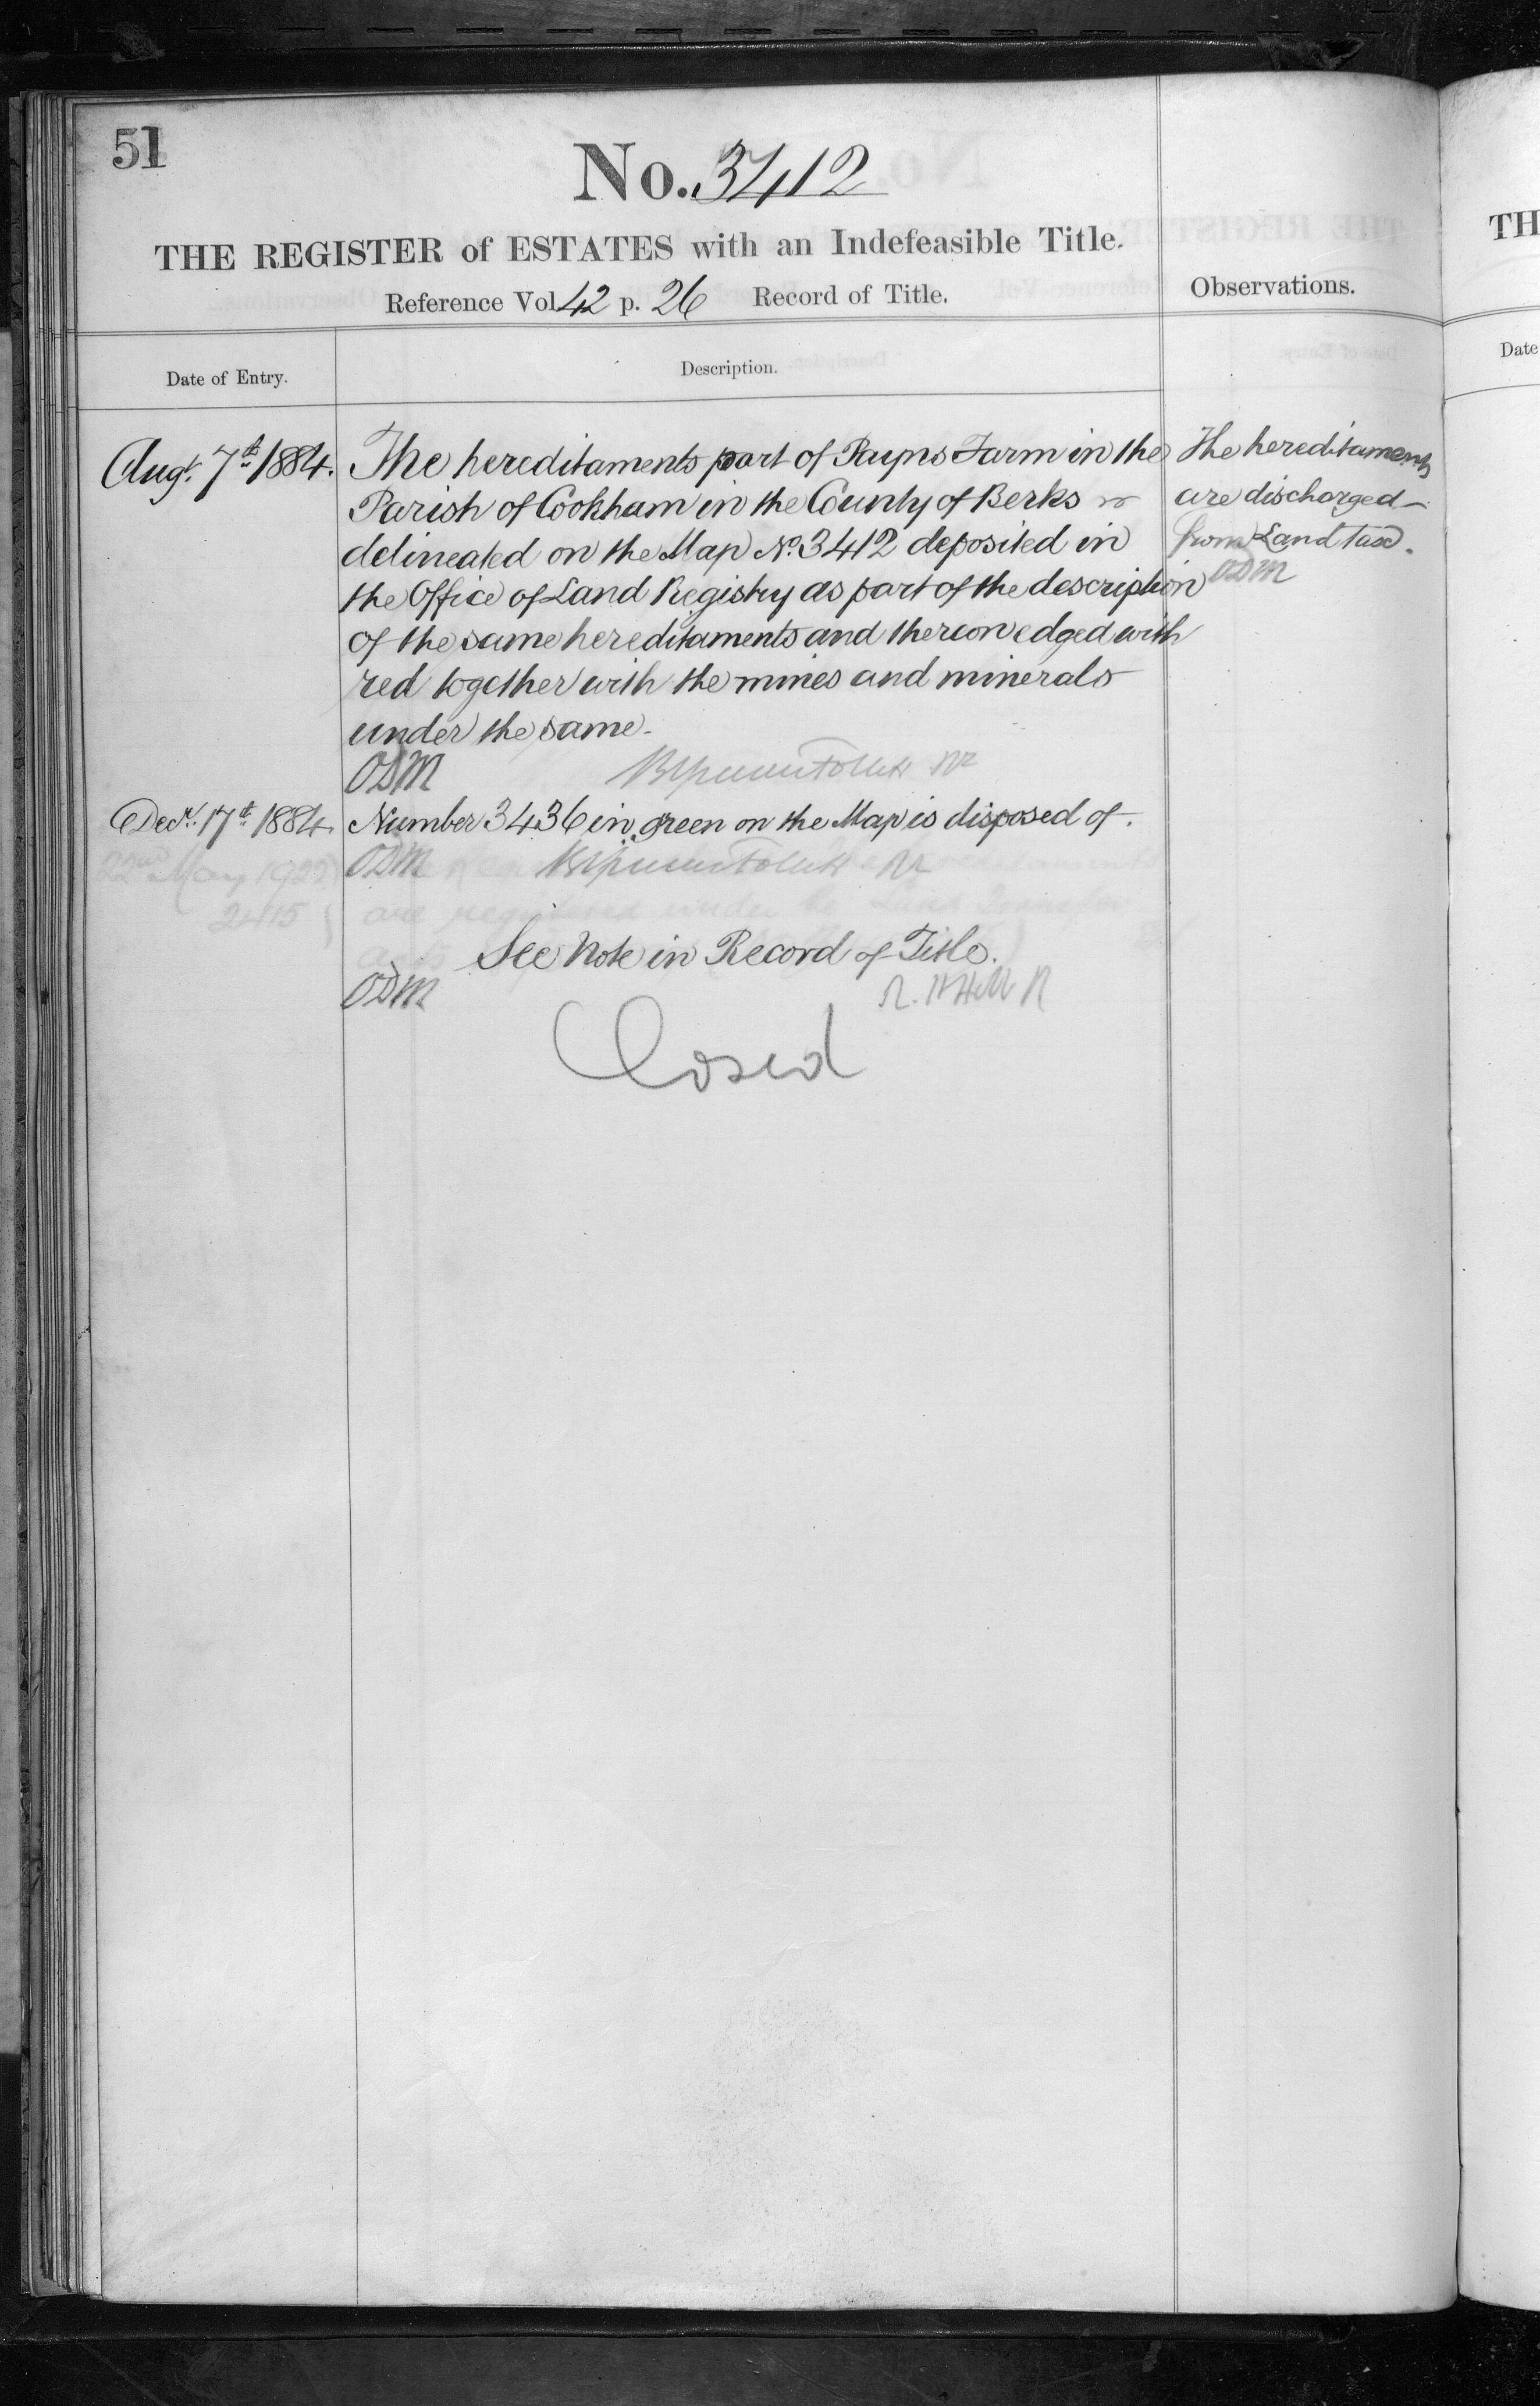 51
No. 3412
THE REGISTER of ESTATES with an Indefeasible Title.
Reference Vol 42 p. 26 Record of Title.
Observations.
Date of Entry.
Description.
Augt. 7th 1884.
The hereditaments part of Farm in the
Parish of Cookham in the County of Berks
delineated on the Map No. 3412 deposited in
the Office of Land Registry as part of the description
of the same hereditaments and thereon edged with
red together with the mines and minerals
under the same.
ODM
The hereditaments
are discharged
from Land tax.
ODM
Decr. 17th 1884.
Number 3436 in green on the Map is disposed of.
ODM
22nd May 1922
2415
are registered under the Land Transfer
See Note in Record of Title.
ODM
Closed
TH
Date